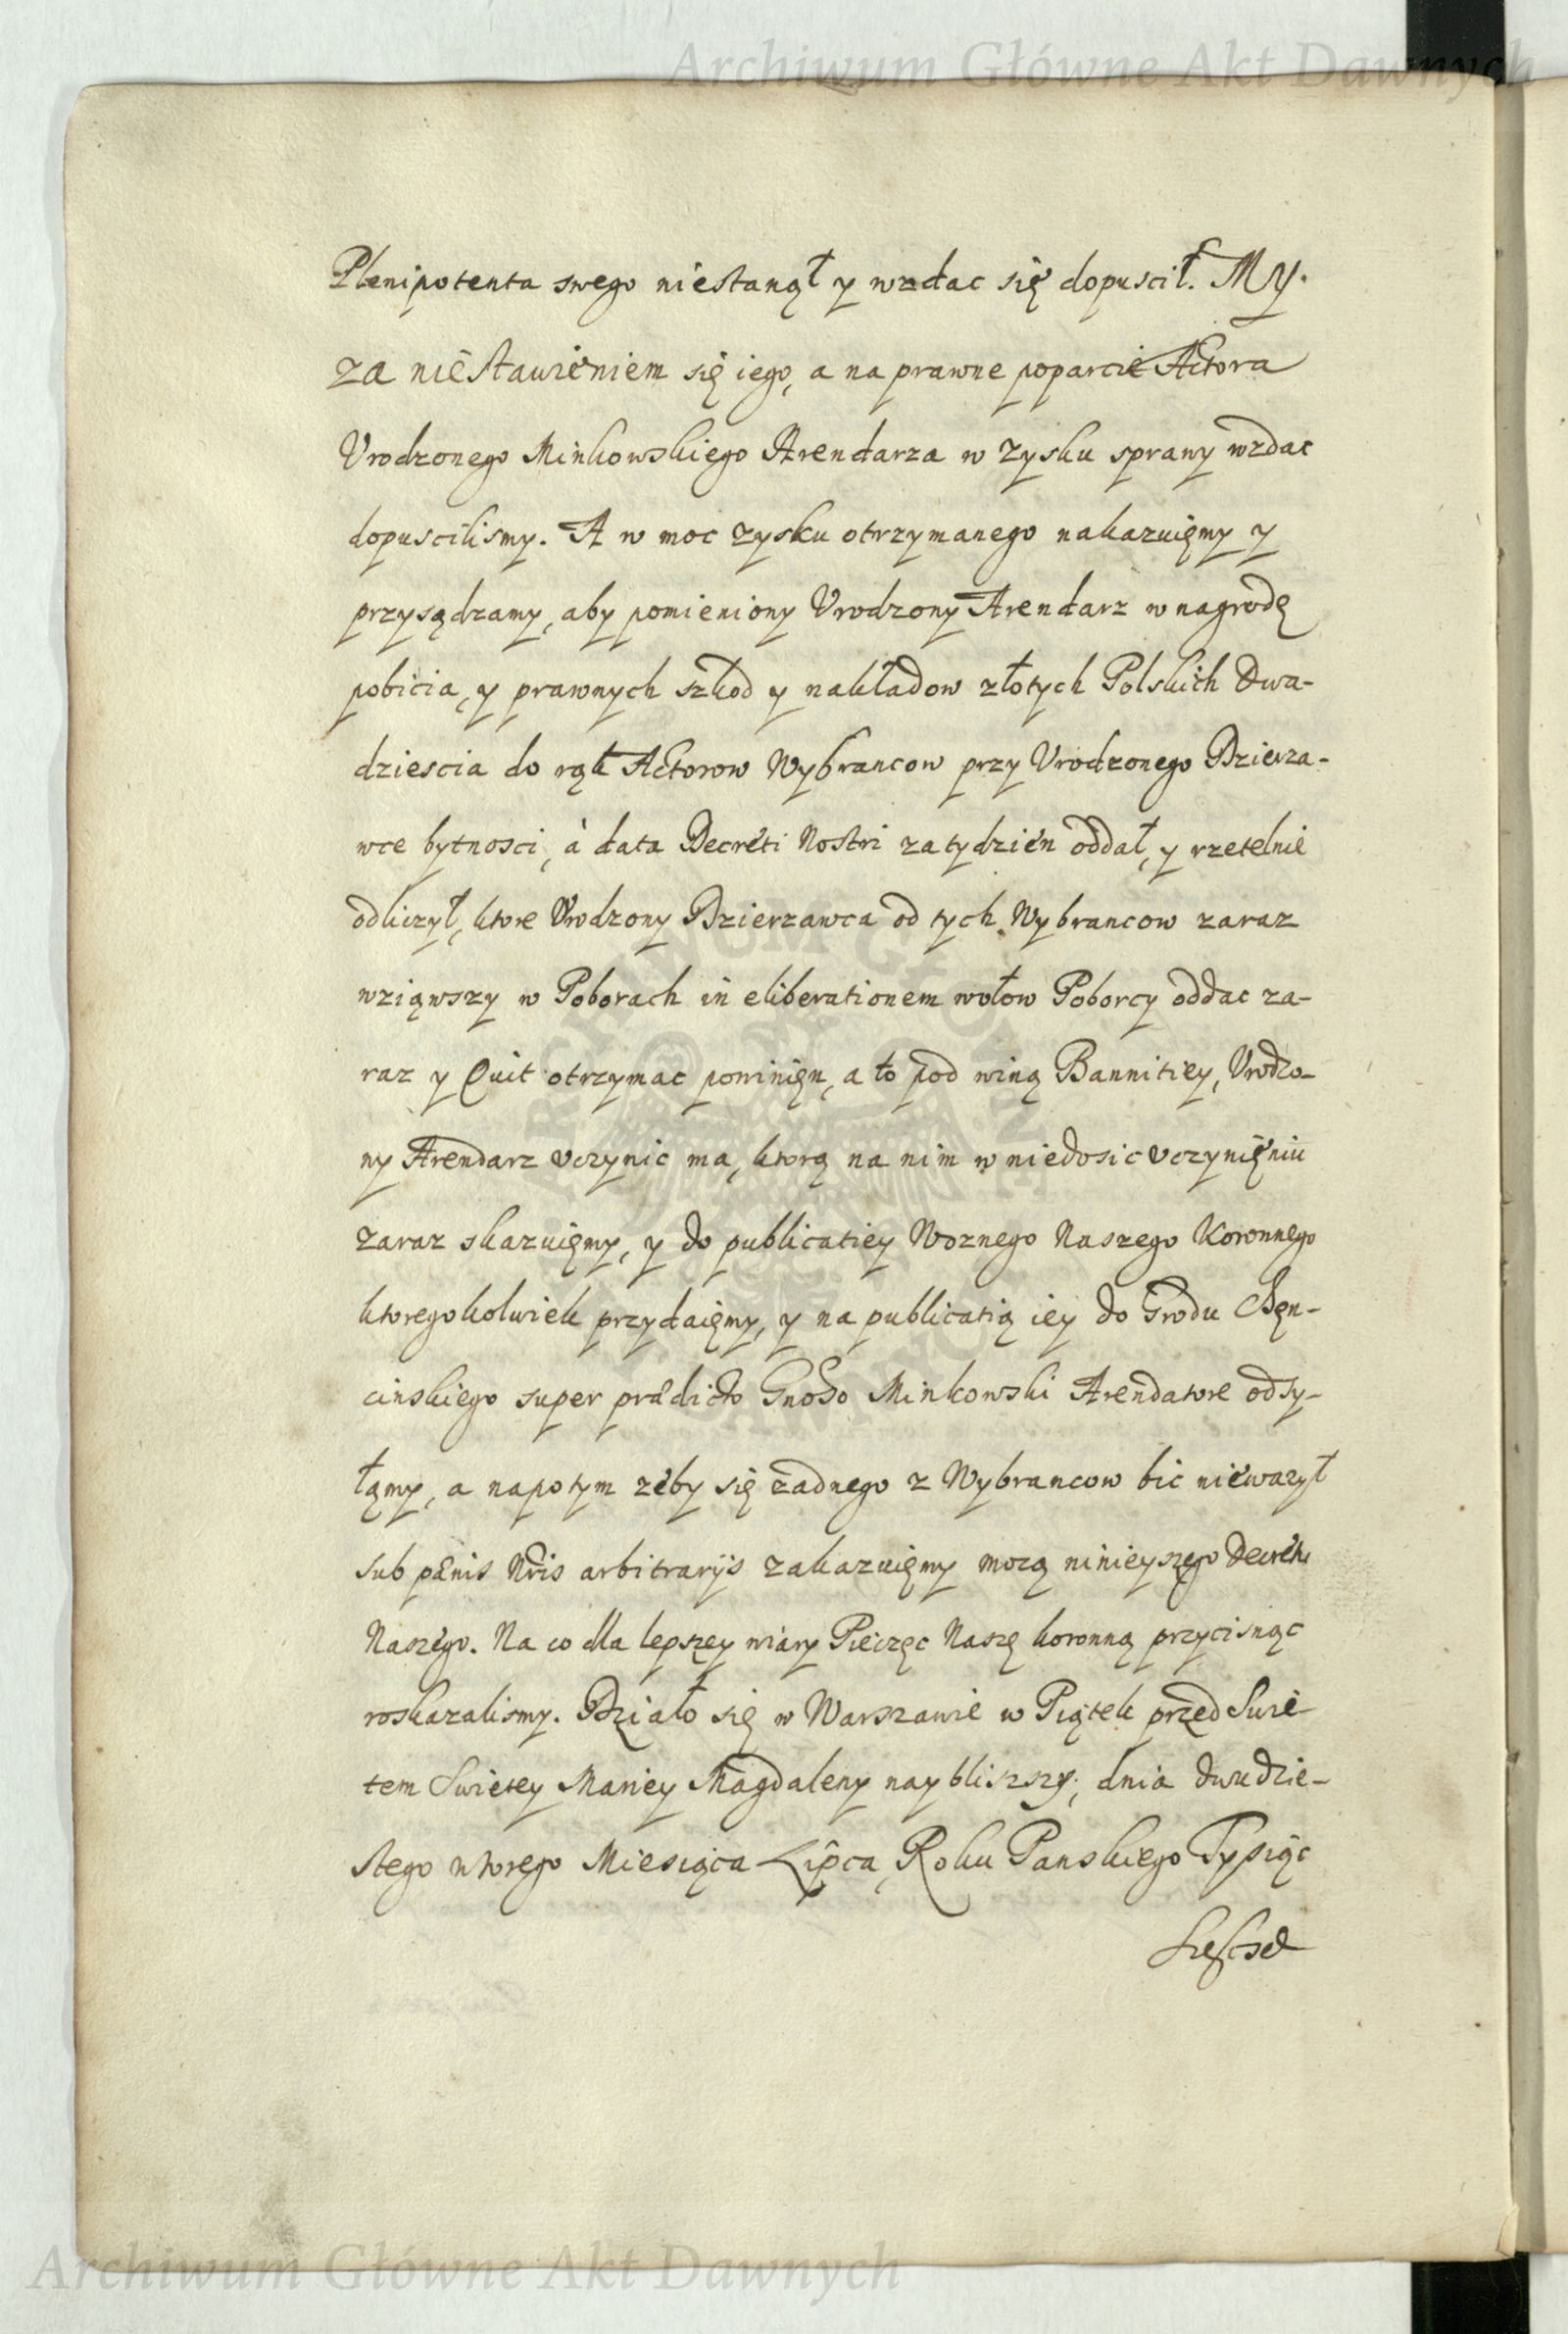 Archiwum Główne Akt Dawnych
Plenipotenta swego niestanął y wzdac się dopuscił. My.
za niestawieniem się iego, a na prawne poparcie Actora
Vrodzonego Minkowskiego Arendarza w zysku sprawy wzdac
dopuscilismy. A w moc zysku otrzymanego nakazuięmy y
przysądzamy, aby pomieniony Vrodzony Arendarz w nagrodę
pobicia, y prawnych szkod y nakładow złotych Polskich Dwa-
dziescia do rąk Actorow Wybrancow przy Vrodzonego Dzierza-
wce bytnosci, à data Decreti Nostri za tydzien oddał, y rzetelnie
odliczył, ktore Vrodzony Dzierzawca od tych Wybrancow zaraz
wziąwszy w Poborach in eliberationem wołow Poborcy oddac za-
raz y Quit otrzymac powinięn, a to pod winą Bannitiey, Vrodzo-
ny Arendarz vczynic ma, ktorą na nim w niedosic vczynięniu
zaraz skazuięmy, y do publicatiey Woznego Naszego Koronnego
ktoregokolwiek przydaięmy, y na publicatią iey do Grodu Chęn-
cinskiego super prædicto Gnoso Minkowski Arendatore odsy-
łąmy, a napotym zeby się zadnego z Wybrancow bic niewazył
sub pænis Nris arbitrarijs zakazuięmy mocą ninieyszego Decretu
Naszego. Na co dla lepszey wiary Pieczęc Naszę koronną przycisnąc
roskazalismy. Działo się w Warszawie w Piątek przed Swie-
tem Swietey Mariey Magdaleny naybliszszy, dnia dwudzie-
stego wtorego Miesiąca Lipca, Roku Panskiego Tysiąc
Szescset
Archiwum Główne Akt Dawnych